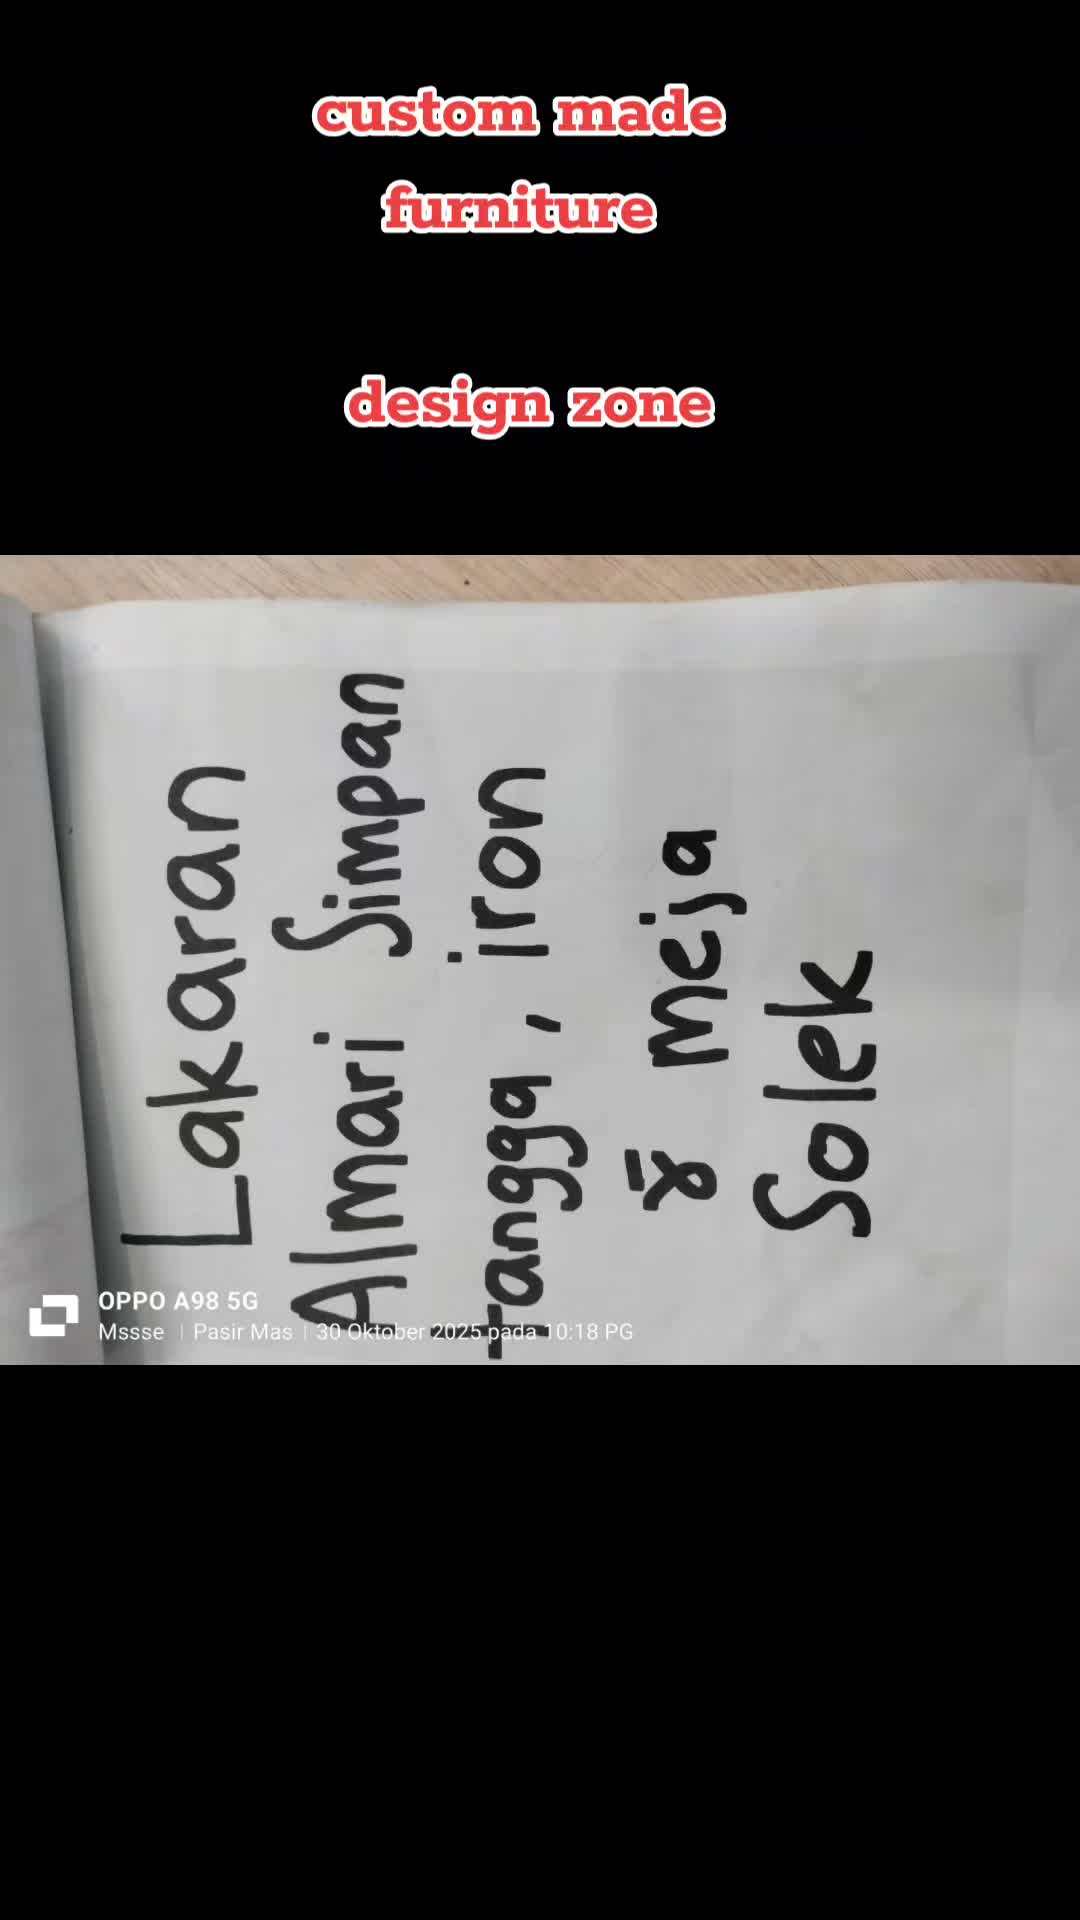 custom made
furniture
design zone
Lakaran
Almari Simpan
tangga, iron
& meja
Solek
OPPO A98 5G
Mssse | Pasir Mas | 30 Oktober 2025 pada 10:18 PG